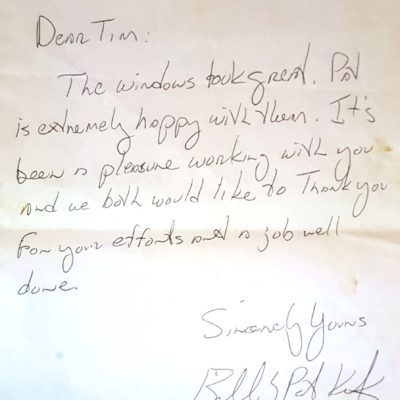 Dear Tim:
The windows look great. Pat
is extremely happy with them. It's
been a pleasure working with you
and we both would like to Thank you
for your efforts and a job well
done.
Sincerely Yours
Bill & Pat